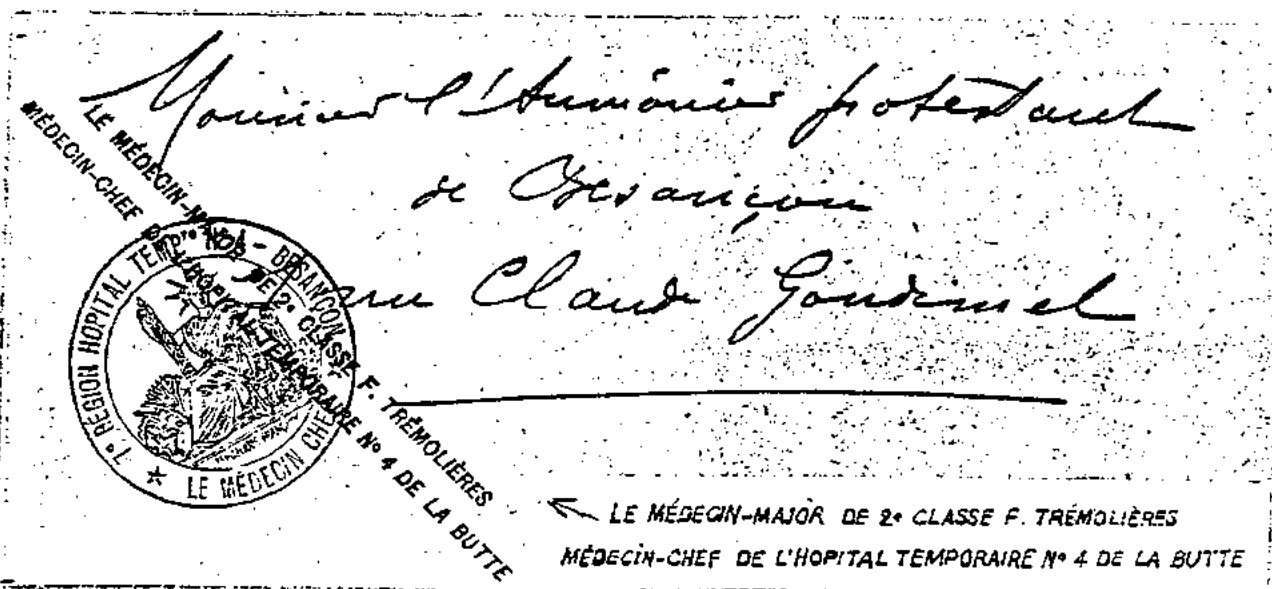 Monsieur l'Aumônier protestant
de Besançon
rue Claude Goudimel
LE MÉDECIN-MAJOR DE 2e CLASSE F. TRÉMOLIÈRES
MÉDECIN-CHEF DE L'HOPITAL TEMPORAIRE No 4 DE LA BUTTE
7e REGION HOPITAL TEMPre No 4 - BESANÇON
LE MÉDECIN CHEF
LE MÉDECIN-MAJOR DE 2e CLASSE F. TRÉMOLIÈRES
MÉDECIN-CHEF DE L'HOPITAL TEMPORAIRE No 4 DE LA BUTTE